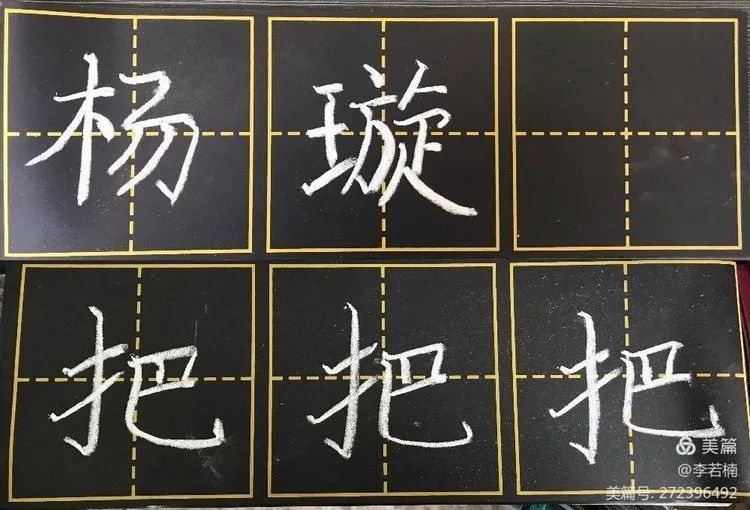 杨璇
把把把
美篇
@李若楠
美篇号: 272396492